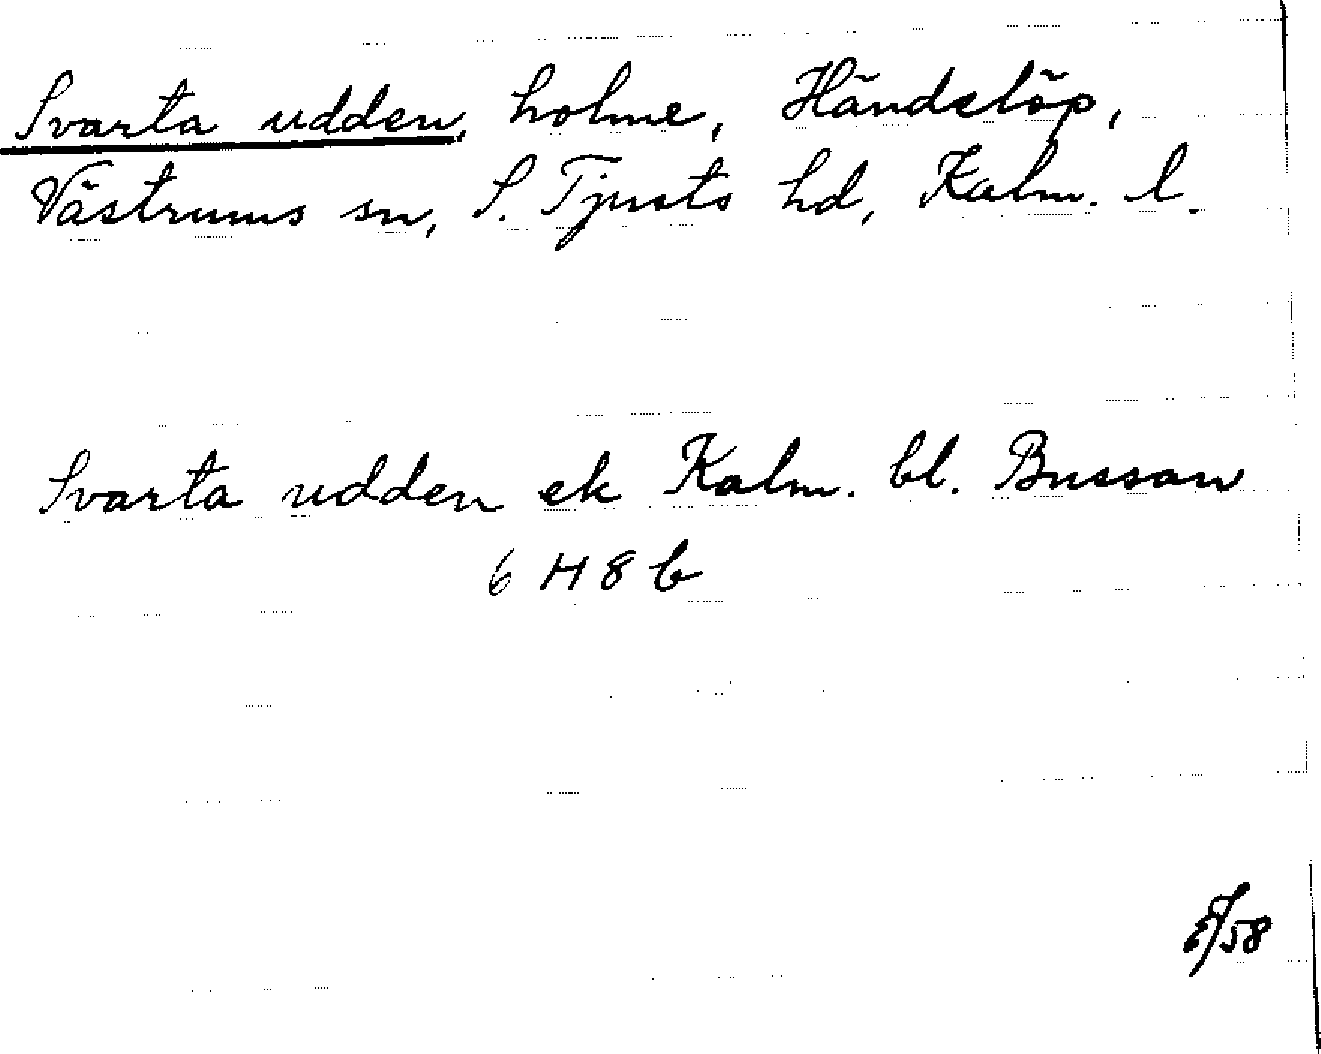 Svarta udden, holme, Händelöp,
Västrums sn, S. Tjusts hd, Kalm. l.
Svarta udden ek Kalm. bl. Bussan
6 H 8 b